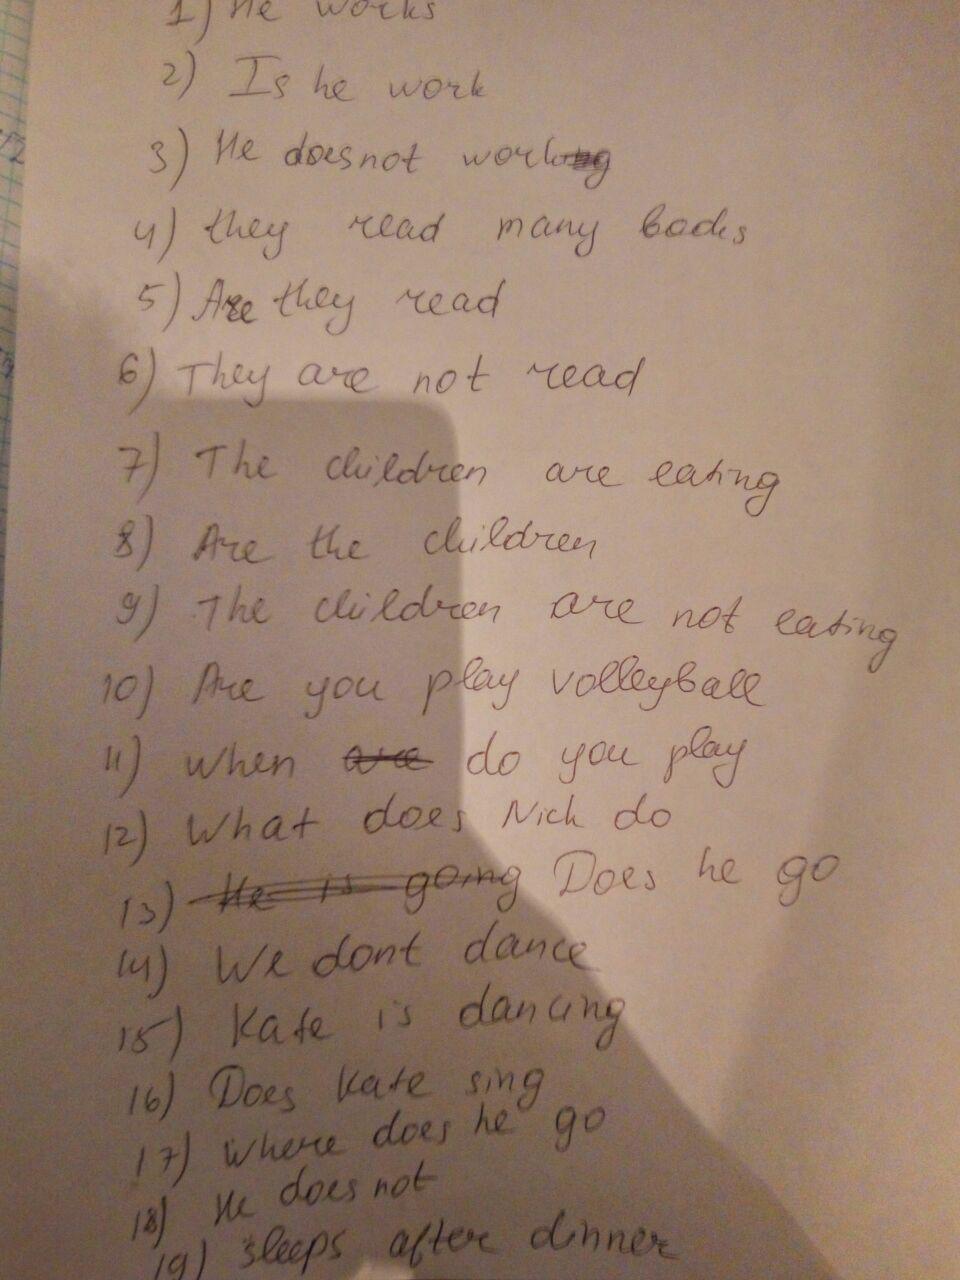 1) He works
2) Is he work
3) He does not work
4) they read many books
5) Are they read
6) They are not read
7) The children are eating
8) Are the children
9) The children are not eating
10) Are you play volleyball
11) when are do you play
12) What does Nick do
13) He is going Does he go
14) We dont dance
15) Kate is dancing
16) Does Kate sing
17) where does he go
18) He does not
19) sleeps after dinner